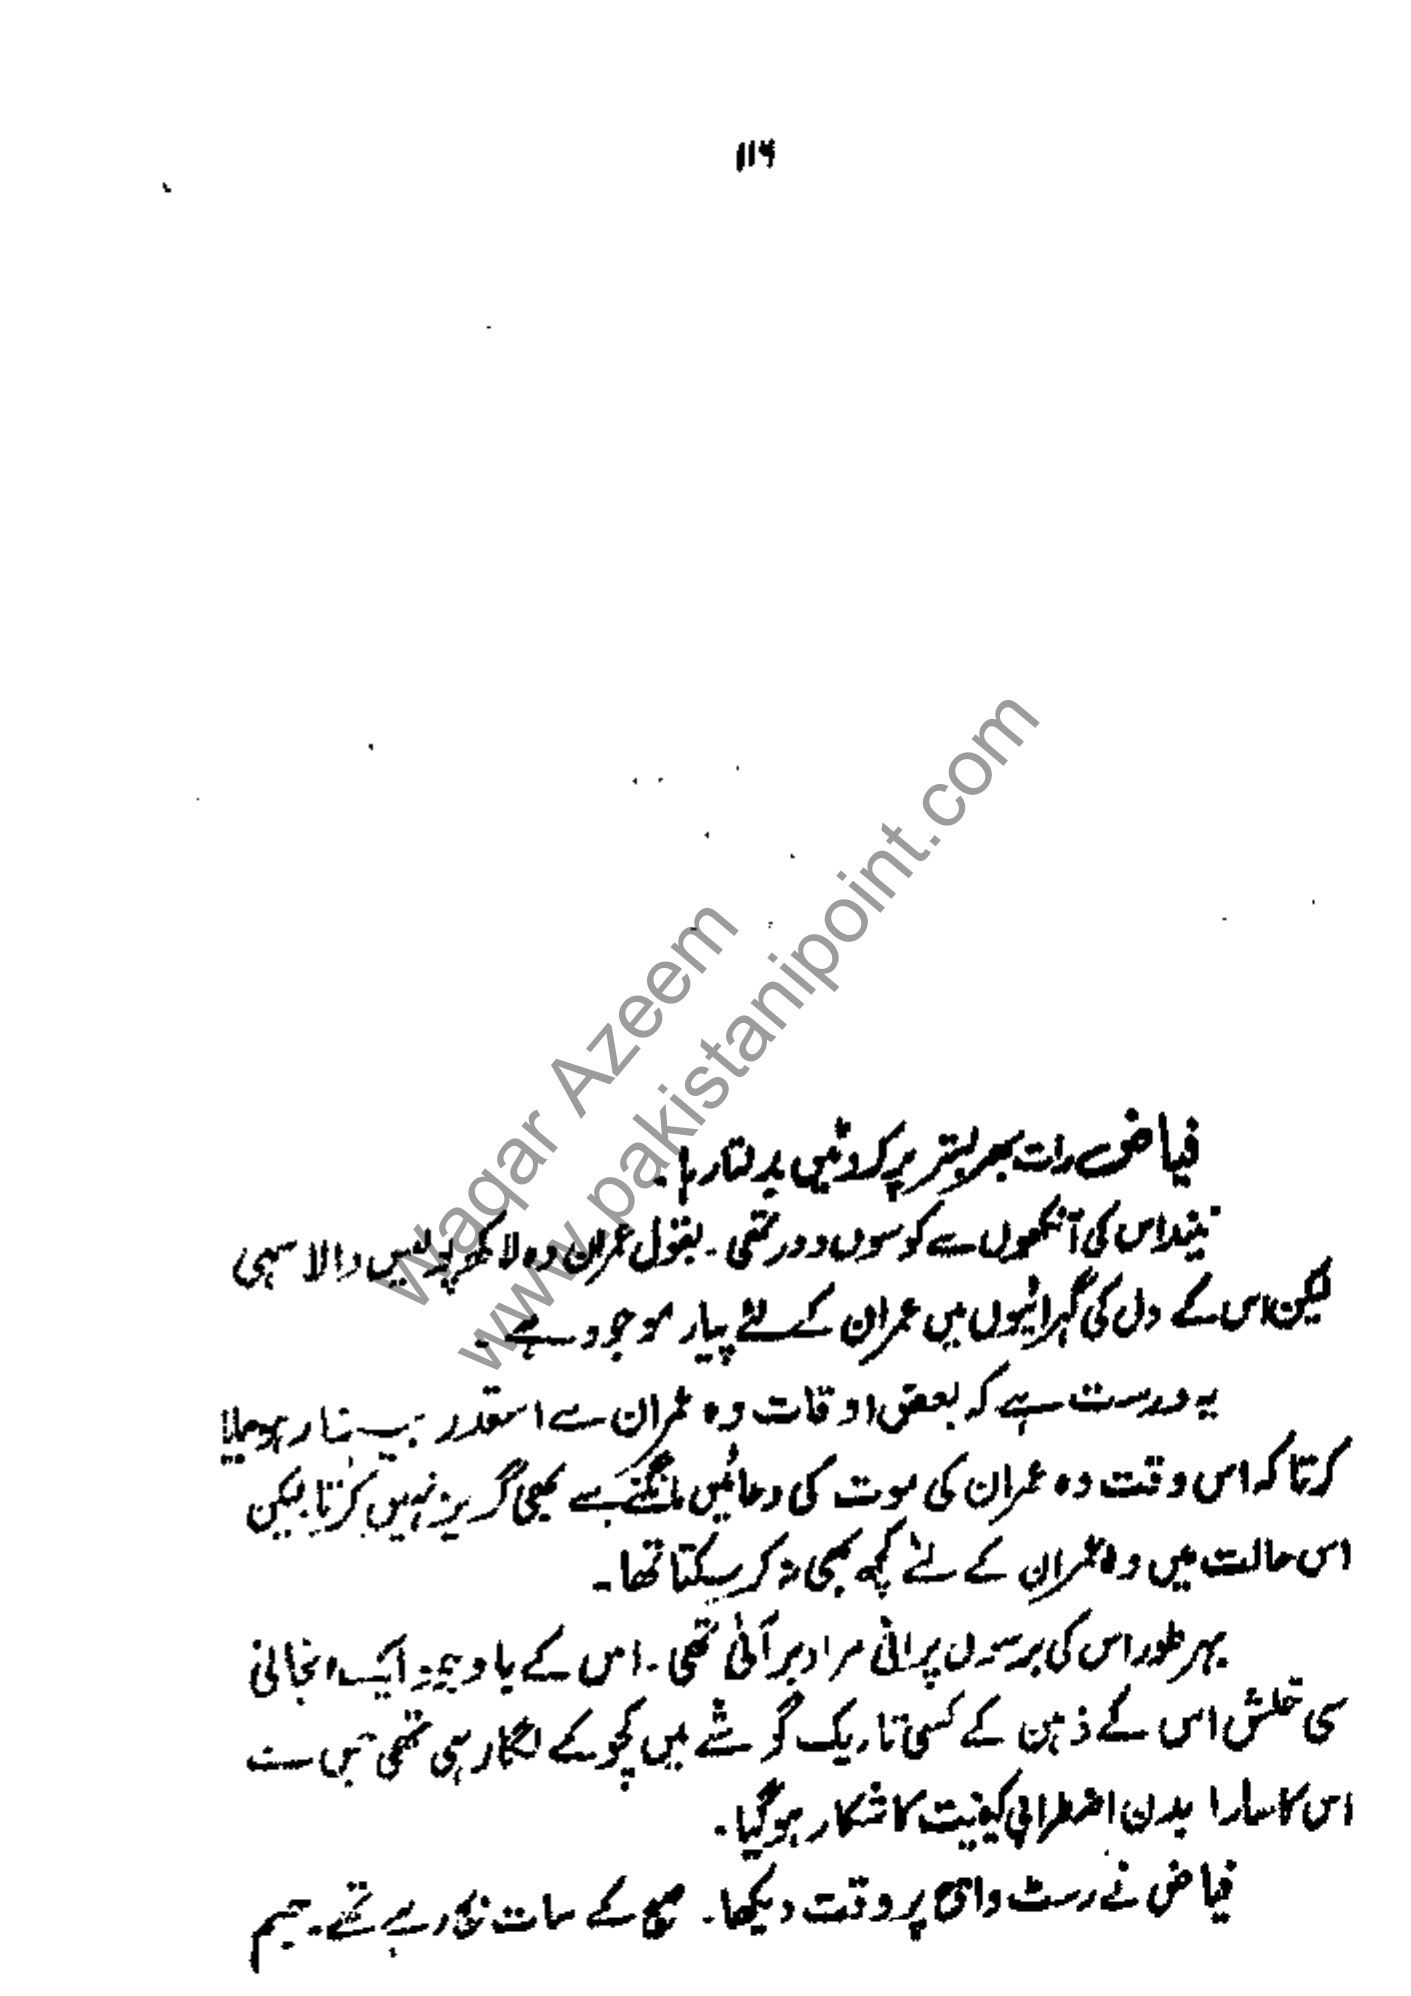 ۱۱۶
فیاض رات بھر بستر پر کروٹیں بدلتا رہا۔
نیند اس کی آنکھوں سے کوسوں دور تھی۔ بقول عمران وہ لاکھ پوئیں والا سہی
لیکن اس کے دل کی گہرائیوں میں عمران کے لئے پیار موجود ہے۔
یہ درست ہے کہ بعض اوقات وہ عمران سے اسقدر بیزار ہو جایا
کرتا کہ اس وقت وہ عمران کی موت کی دعائیں مانگنے سے بھی گریز نہیں کرتا لیکن
اس حالت میں وہ عمران کے لئے کچھ بھی نہ کر سکتا تھا۔
بہرطور اس کی برسوں پرانی مراد بر آئی تھی۔ اس کے باوجود ایک انجانی
سی خلش اس کے ذہن کے کسی تاریک گوشے میں کچوکے لگا رہی تھی جس سے
اس کا سارا بدن اضطرابی کیفیت کا شکار ہو گیا۔
فیاض نے رسٹ واچ پر وقت دیکھا۔ صبح کے سات بج رہے تھے۔ جسم
Waqar Azeem
www.pakistanipoint.com